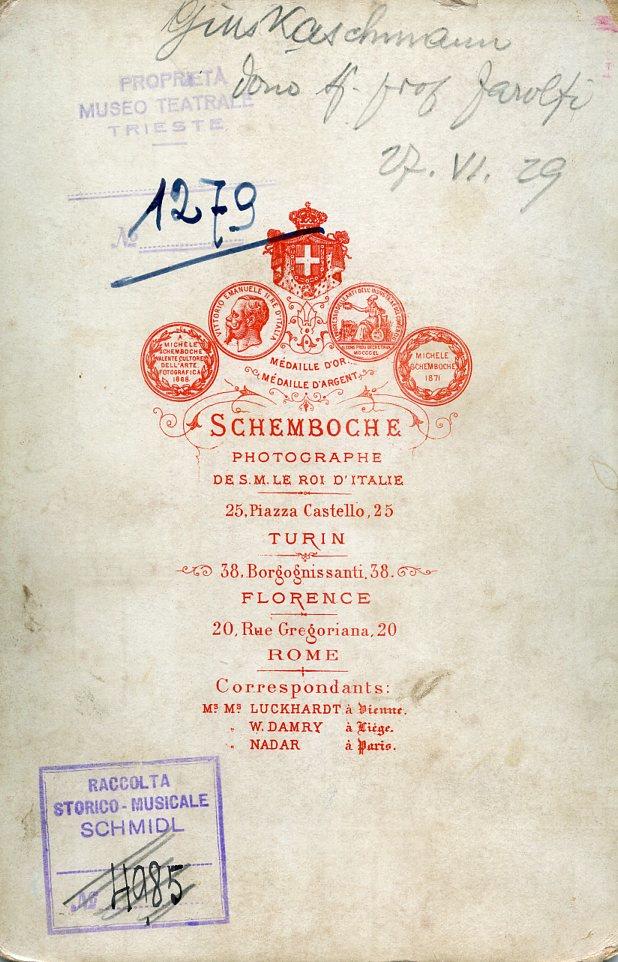 Gius Kaschmann
dono prof Zarolfi
27. VI. 29
PROPRIETÀ
MUSEO TEATRALE
TRIESTE
No 1279
VITTORIO EMANUELE II RE D'ITALIA
A
MICHELE
SCHEMBOCHE
VALENTE CULTORE
DELL'ARTE
FOTOGRAFICA
1868
MICHELE
SCHEMBOCHE
1871
MÉDAILLE D'OR
MÉDAILLE D'ARGENT
SCHEMBOCHE
PHOTOGRAPHE
DE S.M. LE ROI D'ITALIE
25, Piazza Castello, 25
TURIN
38. Borgognissanti. 38.
FLORENCE
20, Rue Gregoriana, 20
ROME
Correspondants:
Mrs Mrs LUCKHARDT à Vienne.
" W. DAMRY à Liége.
" NADAR à Paris.
RACCOLTA
STORICO-MUSICALE
SCHMIDL
No 4985